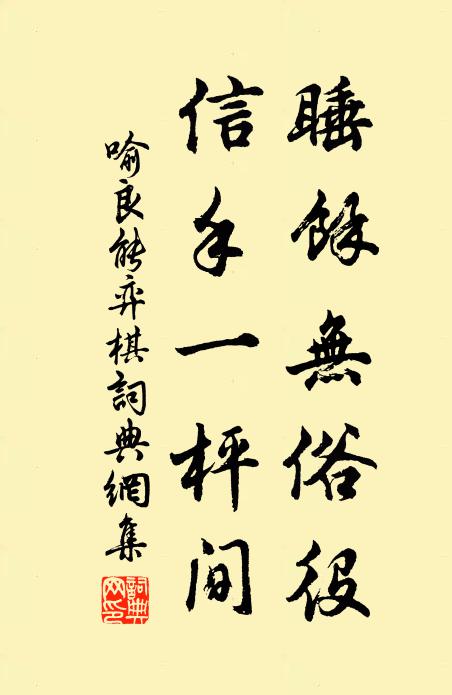 睡餘無俗役
信手一枰间
喻良能弈棋詞典網集
詞典網印